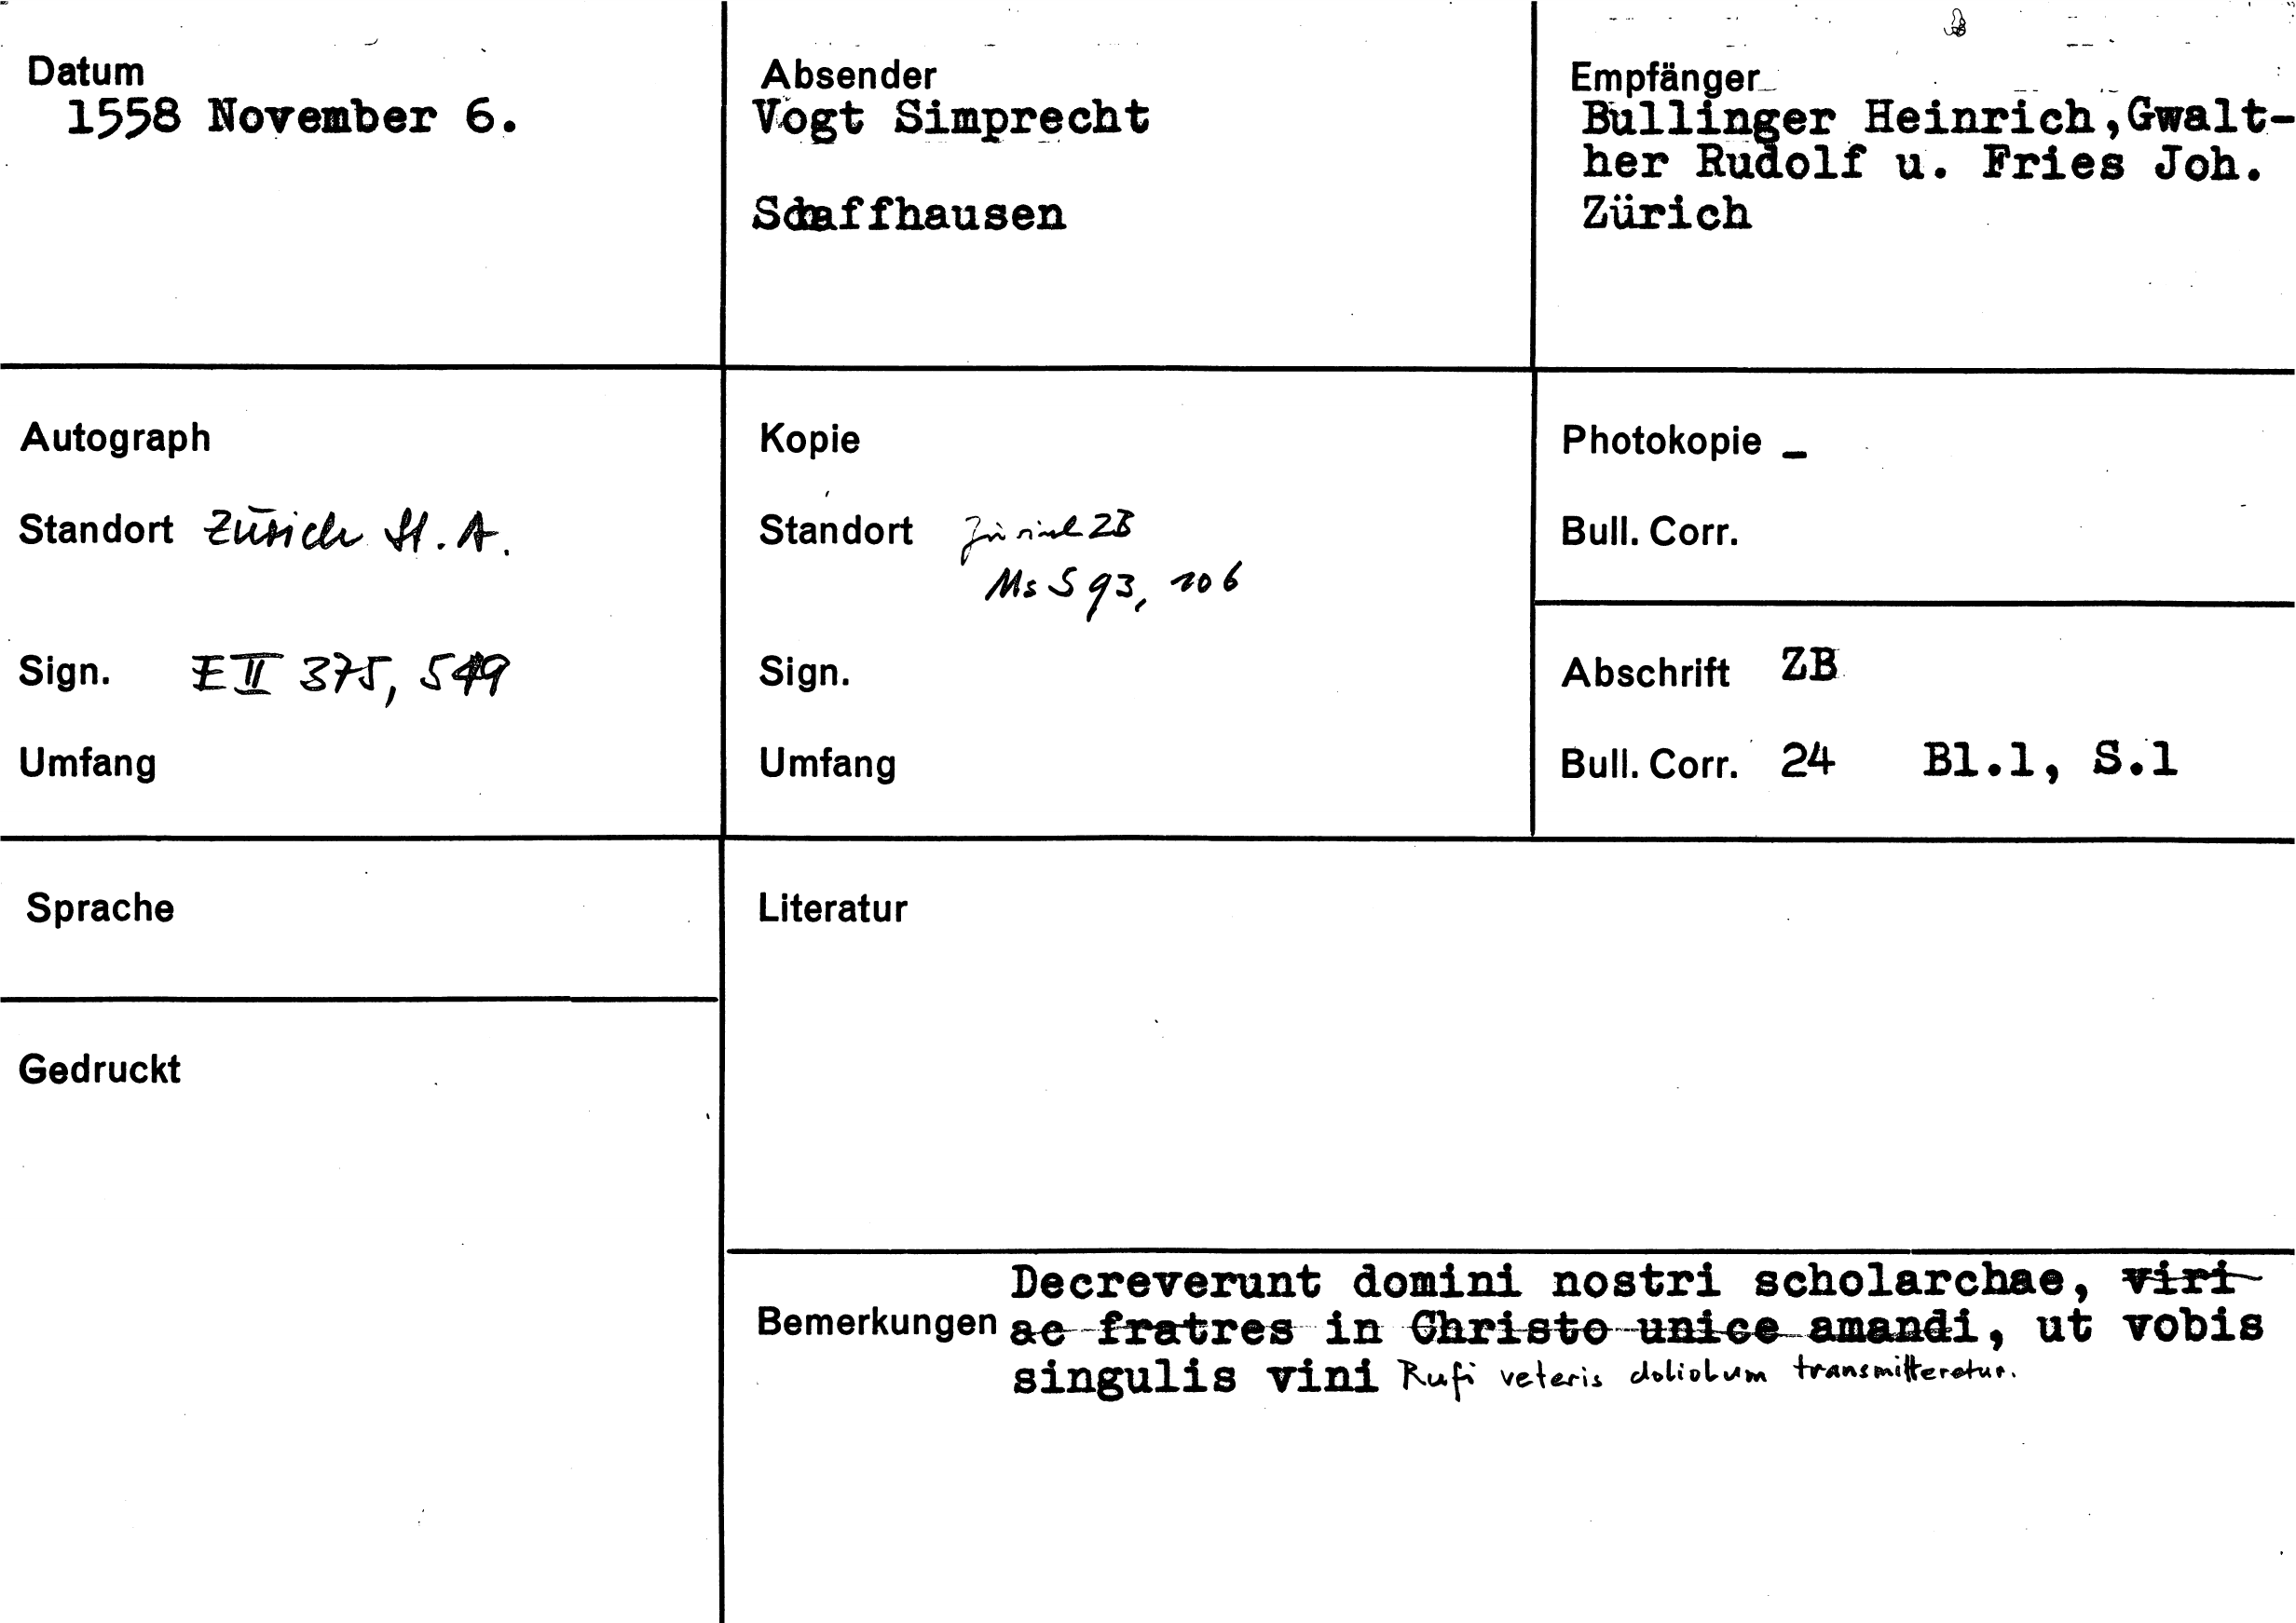 Datum
1558 November 6.
Absender
Vogt Simprecht
Schaffhausen
Empfänger
Bullinger Heinrich, Gwalt-
her Rudolf u. Fries Joh.
Zürich
Autograph
Standort Zürich St. A.
Sign. E II 375, 549
Umfang
Kopie
Standort Zürich ZB
Ms S 93, 106
Sign.
Umfang
Photokopie –
Bull. Corr.
Abschrift ZB
Bull. Corr. 24 Bl.1, S.1
Sprache
Gedruckt
Literatur
Bemerkungen
Decreverunt domini nostri scholarchae, viri
ac fratres in Christo unice amandi, ut vobis
singulis vini Rufi veteris doliolum transmitteretur.